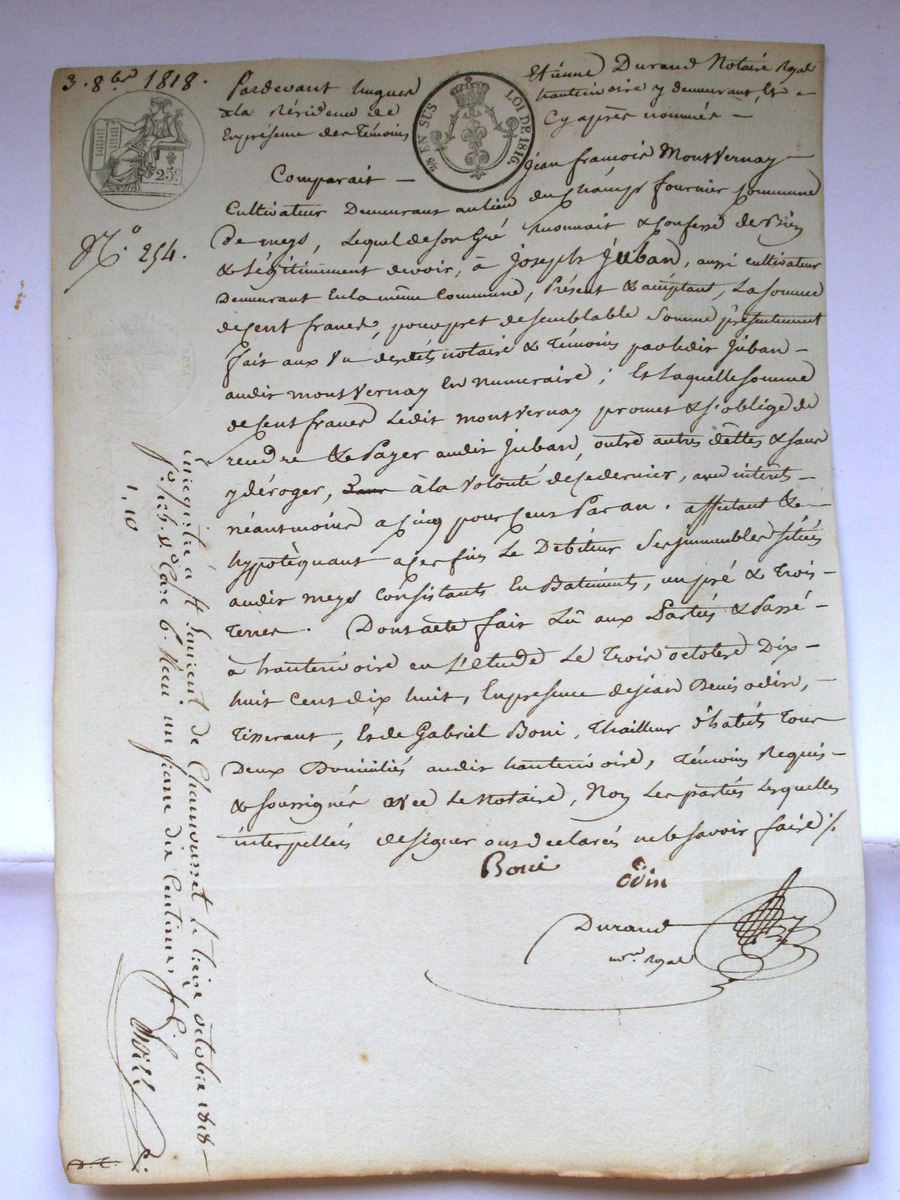 3. 8bre 1818.
25c
2/5 EN SUS LOI DE 1816.
Pardevant hugues Etienne Durand Notaire royal
à la résidence de hauterivoire y demeurant, & en
En présence des Témoins Cy après nommés —
Comparait — Jean françois Montvernay —
Cultivateur Demeurant au lieu du champs fournier Commune
De meys, lequel de son Gré reconnait & Confesse devoir bien
N.o 254.
& légitimement devoir, à Joseph Juban, aussi cultivateur
Demeurant En la même Commune, Présent & acceptant, La somme
de Cent francs, pour pret de semblable Somme présentement
fait aux Vu desdits notaire & Témoins par ledit Juban —
audit montVernay En numeraire ; Et laquelle somme
de Cent francs Ledit montvernay promet & s'oblige de
rendre & Payer audit Juban, outre autres dettes & sans
y déroger, à la Volonté de ce dernier, avec intérêts —
néantmoins a cinq pour Cent Par an. affectant &
hypotèquant a ces fins Le Débiteur Ses immeubles Situés
audit meys Consistants En Batiments, un pré & Trois —
Terres. Dont acte fait Lû aux Parties & Passé —
à hauterivoire en L'étude Le Trois octobre Dix —
huit Cent dix huit, En présence de jean Denis odin, —
Tisserant, Et de Gabriel Boni, Thailleur d'habits Tous
Deux Domiciliés audit hauterivoire, Témoins Requis —
& soussignés avec Le Notaire, Non Les parties Lesquelles
interpellées de signer ont déclarés ne le savoir faire %.
Boni Odin
Durand
nore royal
Enregistré à St Laurent de Chamousset le treize octobre 1818 —
fo. 126. Vo Case 6. Reçu un franc dix Centimes
1. 10
D.C.